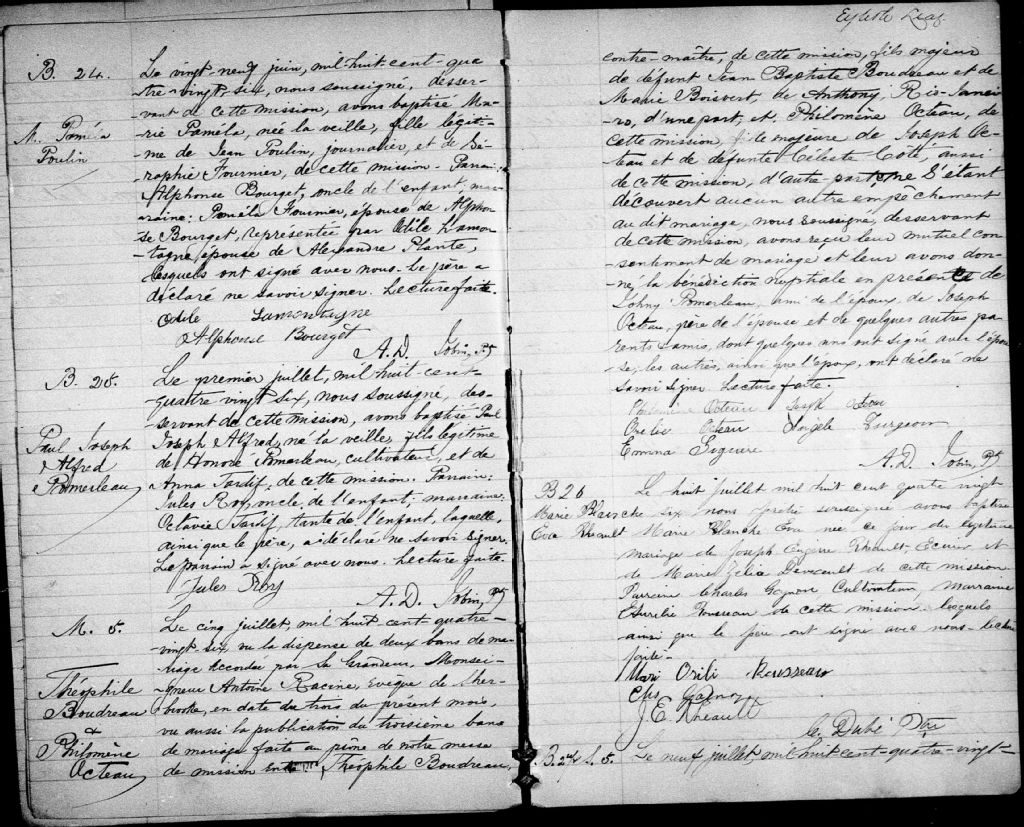 B. 24.
M. Pamela
Poulin
Le vingt neuf juin, mil-huit-cent-qua
-tre-vingt-six, nous soussigné, desser-
vant de cette mission, avons baptisé Ma-
rie Pamela, née la veille, fille légiti-
me de Jean Poulin, journalier, et de Sé-
raphie Fournier, de cette mission. Parrain:
Alphonse Bourget, oncle de l'enfant, mar-
raine: Paméla Fournier, épouse de Alphon
se Bourget, représentée par Odile Lamon
-tagne, épouse de Alexandre Plante,
lesquels ont signé avec nous. Le père a
déclaré ne savoir signer. Lecture faite.
Odile Lamontagne
Alphonse Bourget
A.D. Jobin, Ptr
B. 25.
Paul Joseph
Alfred
Pomerleau
Le premier juillet, mil-huit-cent-
-quatre vingt six, nous soussigné, des-
servant de cette mission, avons baptisé Paul
Joseph Alfred, né la veille, fils légitime
de Honoré Pomerleau, cultivateur, et de
Anna Tardif, de cette mission. Parrain:
Jules Roy, oncle de l'enfant, marraine:
Octavie Tardif, tante de l'enfant, laquelle,
ainsi que le père, a déclaré ne savoir signer.
Le parrain a signé avec nous. Lecture faite.
Jules Roy
A.D. Jobin, Ptr
M. 5.
Théophile
Boudreau
&
Philomène
Octeau
Le cinq juillet, mil-huit-cent-quatre-
-vingt-six, vu la dispense de deux bans de ma-
riage accordée par Sa Grandeur, Monsei-
gneur Antoine Racine, Evêque de Sher-
brooke, en date du trois du présent mois,
vu aussi la publication du troisième bans
de mariage faite au prône de notre messe
de mission entre Théophile Boudreau,
contre-maître, de cette mission, fils majeur
de défunt Jean Baptiste Boudreau et de
Marie Boisvert, de Anthony, Rio-Janei
ro, d'une part, et Philomène Octeau, de
cette mission, fille majeure de Joseph Oc-
teau et de défunte Céleste Côté, aussi
de cette mission, d'autre part; ne s'étant
découvert aucun autre empêchement
au dit mariage, nous soussigné, desservant
de cette mission, avons reçu leur mutuel con
sentement de mariage et leur avons don-
né, la bénédiction nuptiale en présence de
Johny Pomerleau, ami de l'époux, de Joseph
Octeau, père de l'épouse et de quelques autres pa
rents & amis, dont quelques uns ont signé avec l'épou
-se; les autres, ainsi que l'époux, ont déclaré ne
savoir signer. Lecture faite.
Philomène Octeau Joseph Octeau
Octeau Angèle Turgeon
Emma Giguere
A.D. Jobin, Ptr
B 26
Marie Blanche
Eva Rheault
Le huit juillet mil huit cent quatre vingt
six nous prêtre soussigné avons baptisé
Marie Blanche Eva née ce jour du légitime
mariage de Joseph Eugène Rheault, Ecuier et
de Marie Zélia Devault de cette mission
Parrain Charles Gagnon Cultivateur, Marraine
Aurelie Rousseau de cette mission lesquels
ainsi que le père ont signé avec nous. lecture
faite.
Marie Orili Rousseau
Chs Gagnon
J E Rheault
C. Dubé Ptre
B. S. 5.
Le neuf juillet, mil huit cent-quatre-vingt-